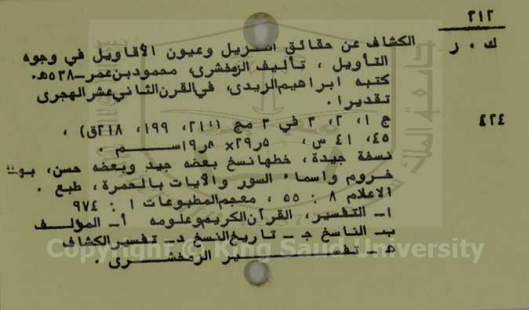 ٢١٢
ك . ز
الكشاف عن حقائق التنزيل وعيون الأقاويل في وجوه
التأويل ، تأليف الزمخشرى، محمود بن عمر ـ ٥٣٨هـ.
كتبه ابراهيم الزيدى، في القرن الثاني عشر الهجرى
تقديرا .
٤٢٤
ج ١، ٢، ٣ في ٣ مج (٢١١، ١٩٩، ٢١٨ق) ،
٤٥، ٤١ س ، ٥ر٢٩×٥ر١٩ســم .
نسخة جيدة، خطها نسخ بعضه جيد وبعضه حسن، بها
خروم واسماء السور والآيات بالحمرة، طبع .
الاعلام ٨ : ٥٥ ، معجم المطبوعات ١ : ٩٧٤
١ـ التفسير، القرآن الكريم وعلومه أ ـ المؤلف
ب ـ الناسخ ج ـ تاريخ النسخ د ـ تفسير الكشاف
هـ ـ تفسير الزمخشرى .
Copyright © King Saud University